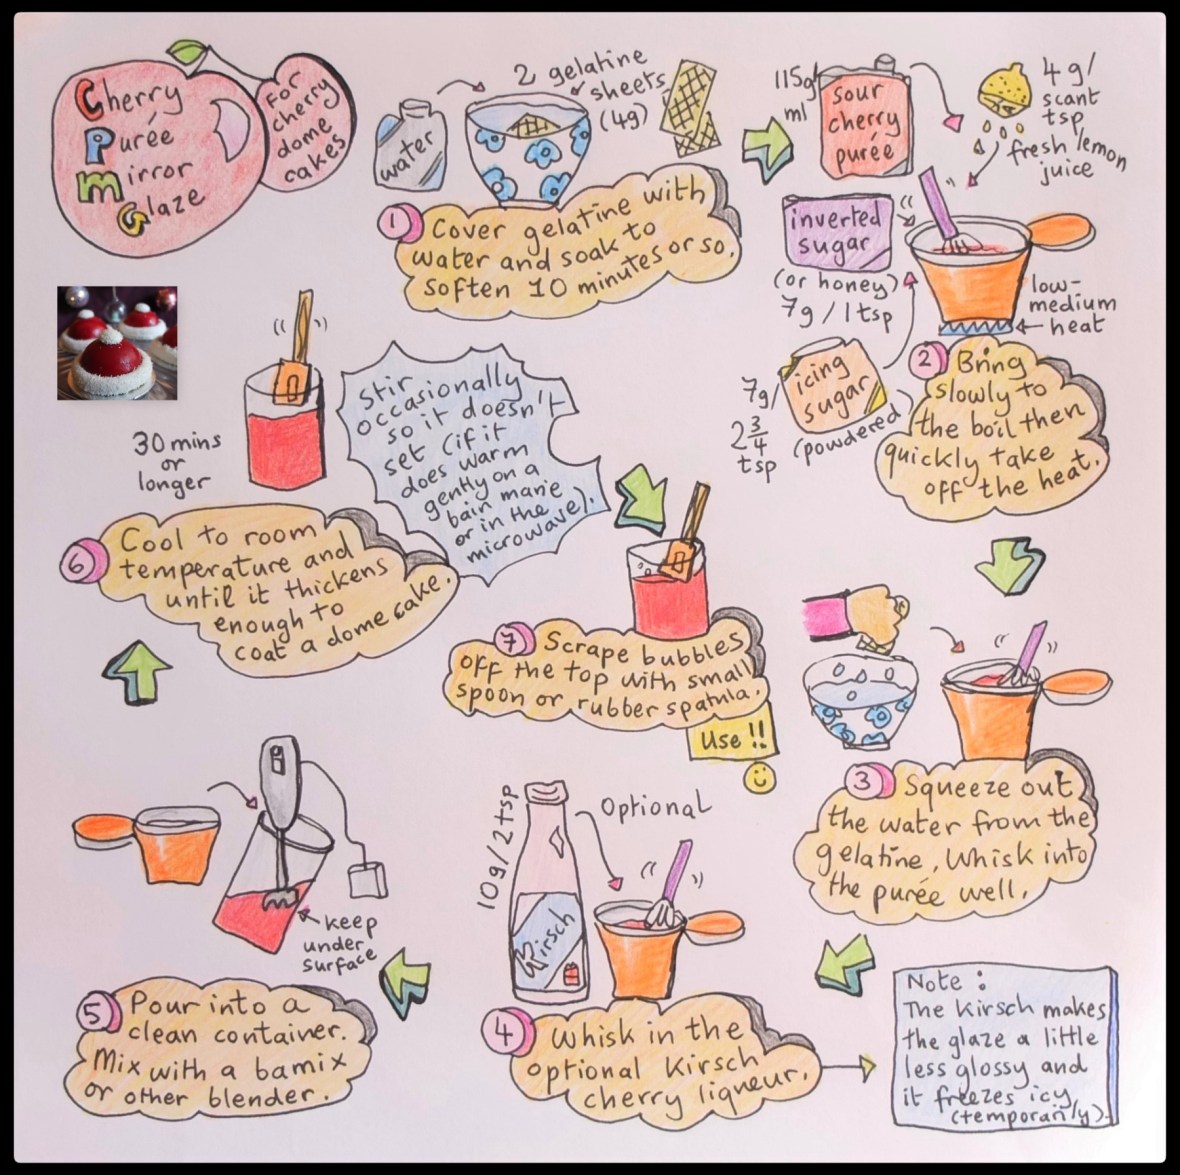 Cherry
Purée
Mirror
Glaze
For
cherry
dome
cakes
water
2 gelatine
sheets
(4g)
1
Cover gelatine with
water and soak to
soften 10 minutes or so.
115g/
ml
sour
cherry
purée
4g/
scant
tsp
fresh lemon
juice
inverted
sugar
(or honey)
7g/1tsp
icing
sugar
(powdered)
7g/
2 3/4
tsp
low-
medium
heat
2
Bring
slowly to
the boil then
quickly take
off the heat.
3
Squeeze out
the water from the
gelatine, Whisk into
the purée well.
10g/2tsp
Optional
Kirsch
4
Whisk in the
optional Kirsch
cherry liqueur.
Note :
The Kirsch makes
the glaze a little
less glossy and
it freezes icy
(temporarily).
keep
under
surface
5
Pour into a
clean container.
Mix with a bamix
or other blender.
30 mins
or
longer
6
Cool to room
temperature and
until it thickens
enough to
coat a dome cake.
Stir
occasionally
so it doesn't
set (if it
does warm
gently on a
bain marie
or in the
microwave).
7
Scrape bubbles
off the top with small
spoon or rubber spatula.
Use !!